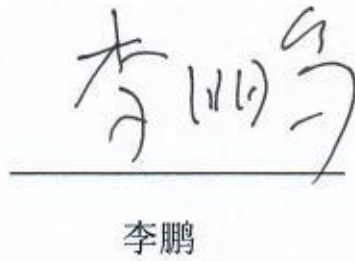 李鹏
李鹏